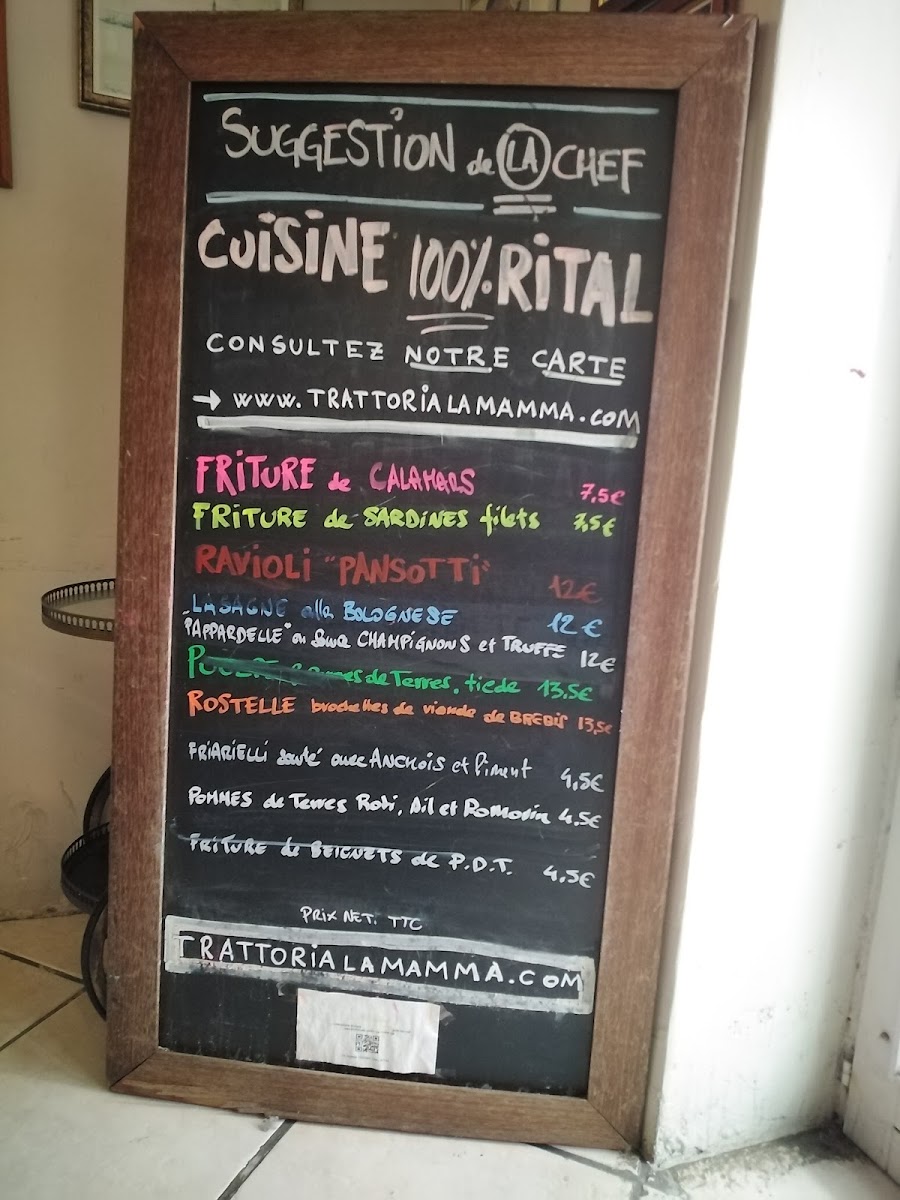 SUGGESTION de LA CHEF
CUISINE 100% RITAL
CONSULTEZ NOTRE CARTE
→ www.TRATTORIALAMAMMA.COM
FRITURE de CALAMARS 7,5€
FRITURE de SARDINES filets 7,5€
RAVIOLI "PANSOTTI" 12€
LASAGNE alla BOLOGNESE 12€
"PAPPARDELLE" au Sauce CHAMPIGNONS et TRUFFE 12€
de Terres, tiede 13,5€
ROSTELLE brochettes de viande de BREBIS 13,5€
FRIARIELLI sauté avec ANCHOIS et Piment 4,5€
POMMES de Terres Roti, Ail et Romarin 4.5€
FRITURE de BEIGNETS de P.D.T. 4.5€
PRIX NET. TTC
TRATTORIALAMAMMA.COM